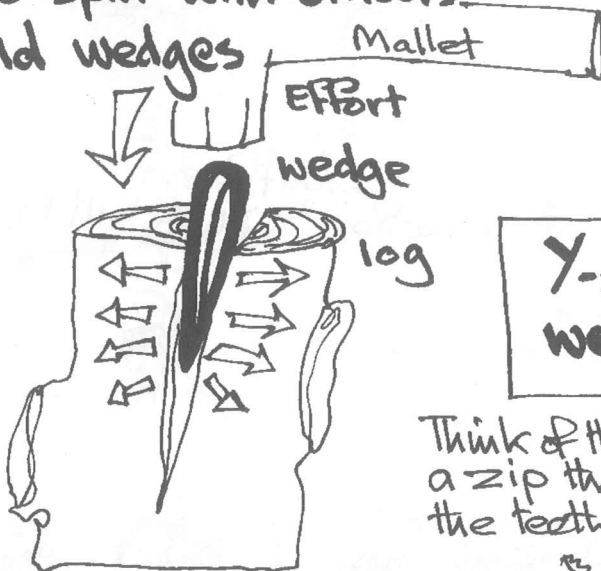 split with
wedges
Mallet
Effort
wedge
log
Y-
we
Think of th
a zip th
the teeth